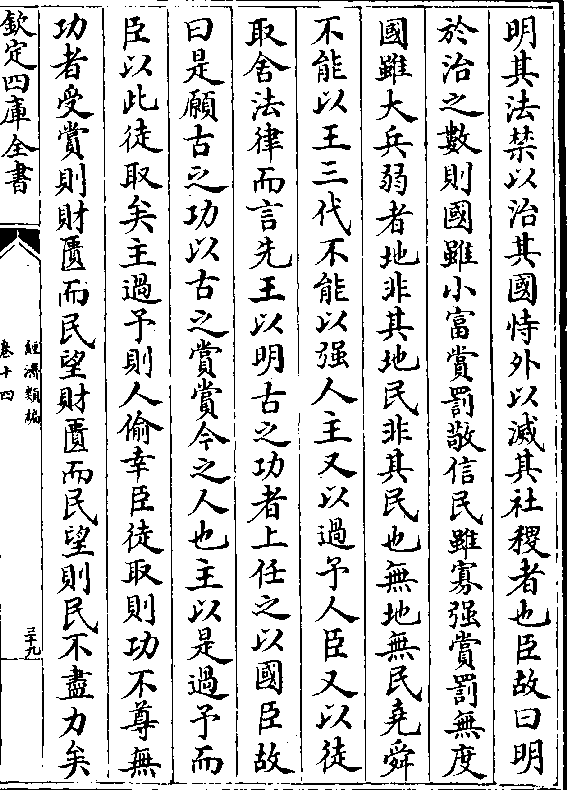 明其法禁以治其國恃外以滅其社稷者也臣故曰明
於治之數則國雖小富賞罰敬信民雖寡强賞罰無度
國雖大兵弱者地非其地民非其民也無地無民堯舜
不能以王三代不能以强人主又以過予人臣又以徒
取舍法律而言先王以明古之功者上任之以國臣故
曰是願古之功以古之賞賞今之人也主以是過予而
臣以此徒取矣主過予則人偷幸臣徒取則功不尊無
功者受賞則財匱而民望財匱而民望則民不盡力矣
欽定四庫全書
經濟類編
卷十四
三十九